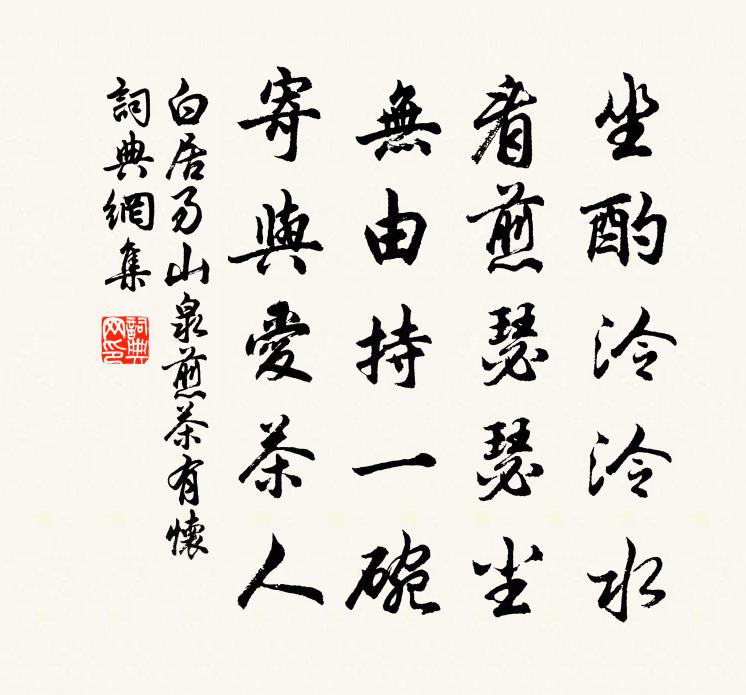 坐酌泠泠水
看煎瑟瑟尘
無由持一碗
寄與愛茶人
白居易山泉煎茶有懷
詞典網集
詞典网印